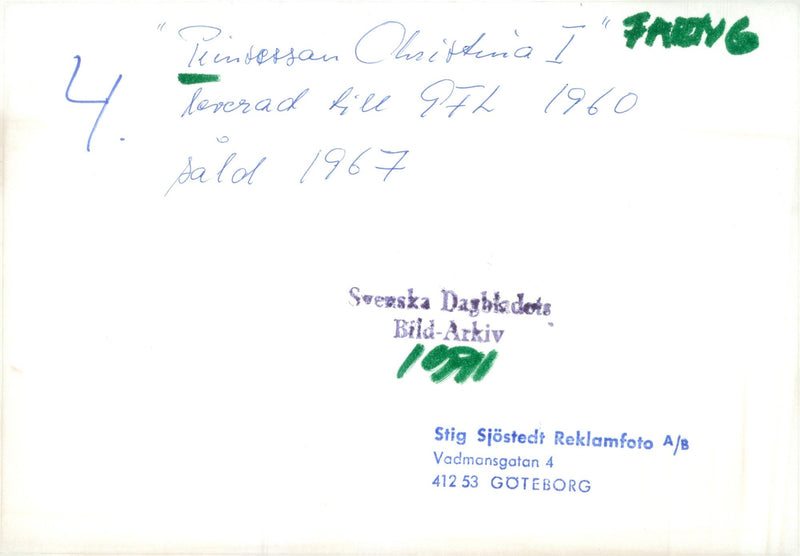 "Prinsessan Christina I"
4.
leverad till GFL 1960
såld 1967
Svenska Dagbladets
Bild-Arkiv
Stig Sjöstedt Reklamfoto A/B
Vadmansgatan 4
412 53 GÖTEBORG